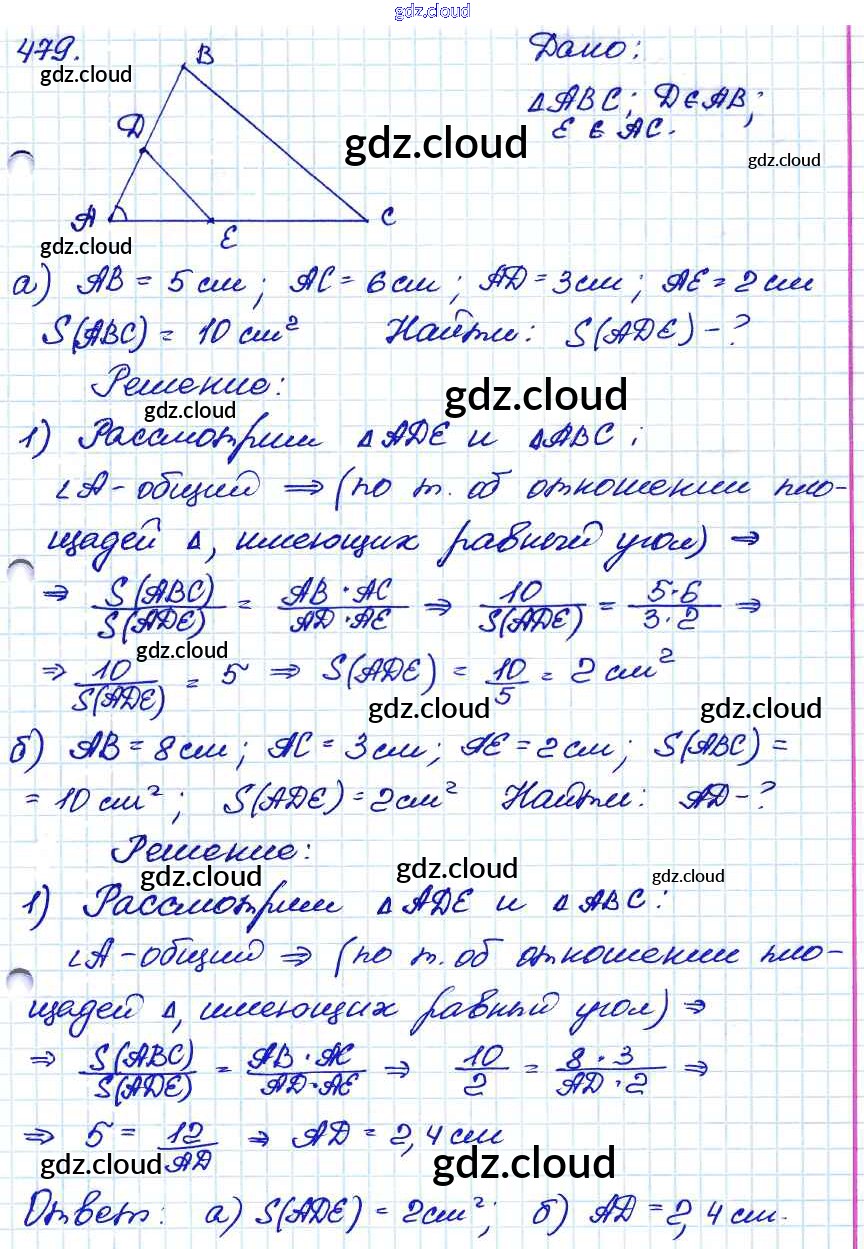 gdz.cloud
gdz.cloud
479.
gdz.cloud
B
D
A
E
C
Дано:
△ABC; D∈AB;
E ∈ AC.
gdz.cloud
gdz.cloud
gdz.cloud
а) AB = 5 см; AC = 6 см; AD = 3 см; AE = 2 см
S(ABC) = 10 см² Найти: S(ADE) - ?
Решение:
gdz.cloud
gdz.cloud
1) Рассмотрим △ADE и △ABC;
∠A - общий ⇒ (по т. об отношении пло-
щадей △, имеющих равный угол) ⇒
⇒ S(ABC)/S(ADE) = AB · AC/AD · AE ⇒ 10/S(ADE) = 5·6/3·2 ⇒
gdz.cloud
⇒ 10/S(ADE) = 5 ⇒ S(ADE) = 10/5 = 2 см²
gdz.cloud
gdz.cloud
б) AB = 8 см; AC = 3 см; AE = 2 см; S(ABC) =
= 10 см²; S(ADE) = 2 см² Найти: AD - ?
Решение:
gdz.cloud
gdz.cloud
gdz.cloud
1) Рассмотрим △ADE и △ABC:
∠A - общий ⇒ (по т. об отношении пло-
щадей △, имеющих равный угол) ⇒
⇒ S(ABC)/S(ADE) = AB · AC/AD · AE ⇒ 10/2 = 8 · 3/AD · 2 ⇒
⇒ 5 = 12/AD ⇒ AD = 2,4 см
gdz.cloud
gdz.cloud
Ответ: а) S(ADE) = 2 см²; б) AD = 2,4 см.